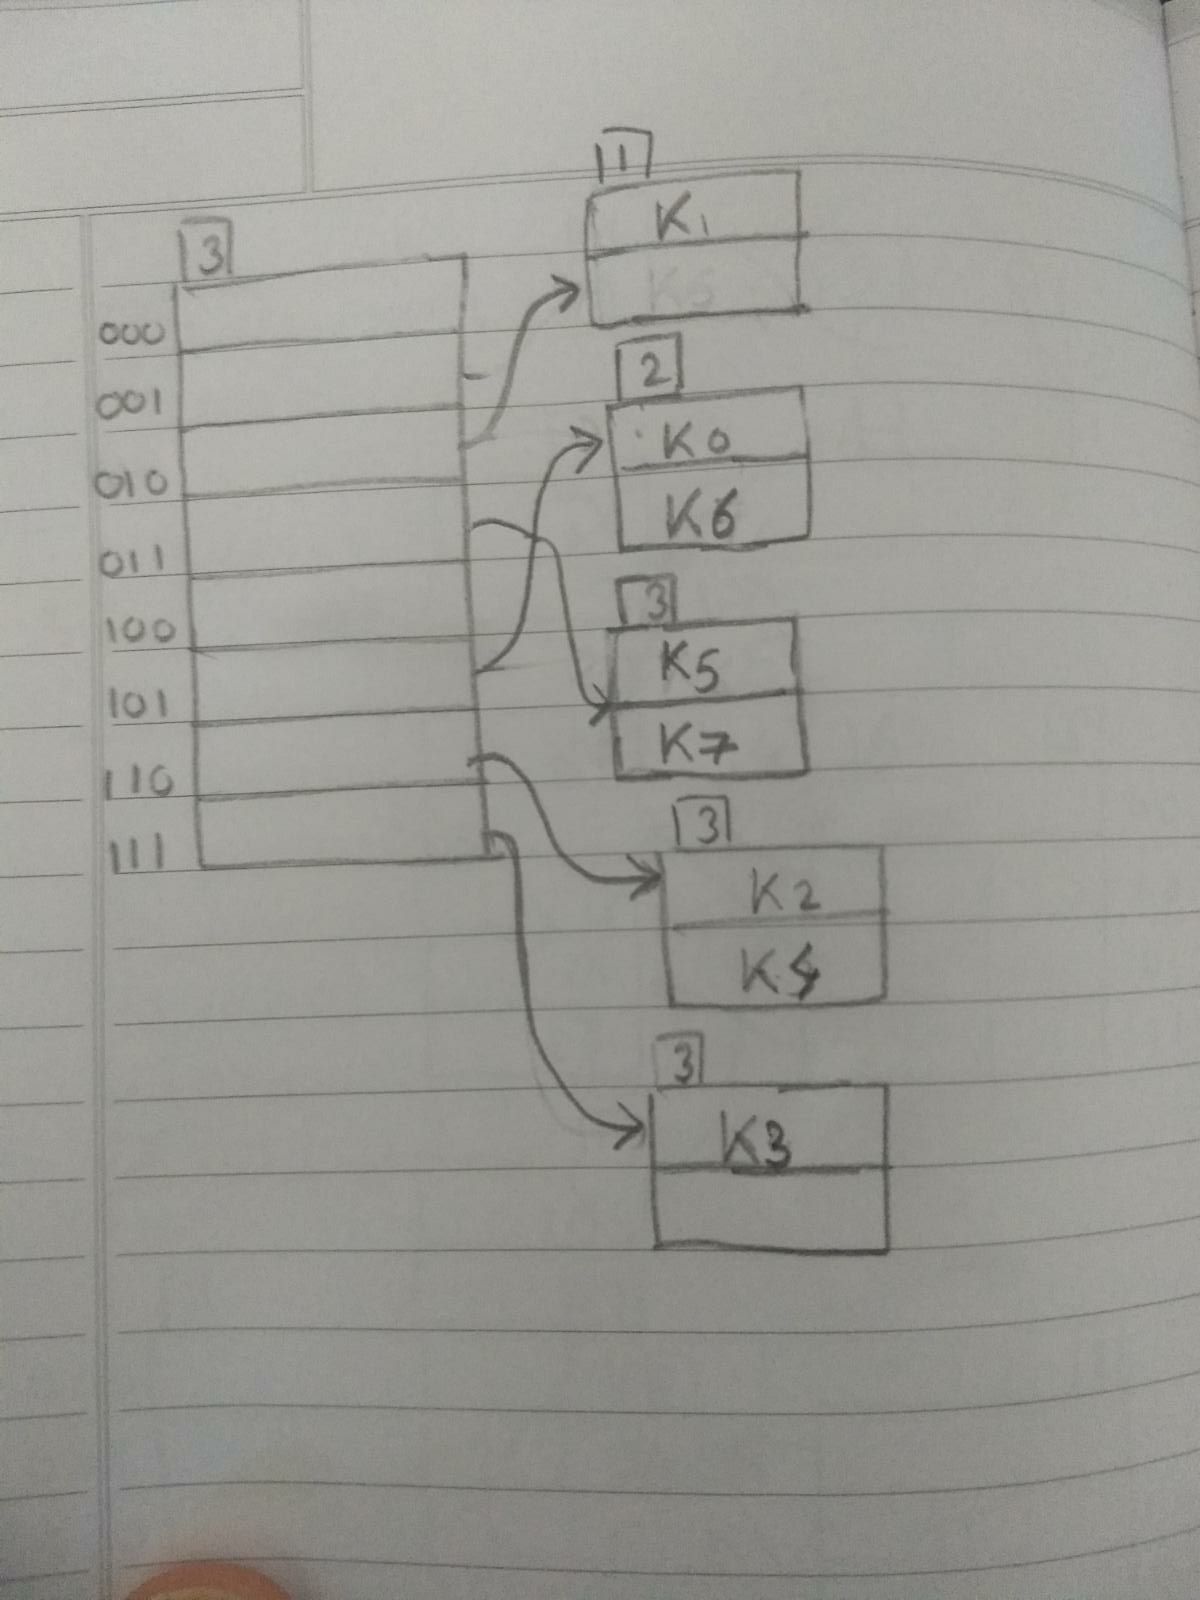 3
000
001
010
011
100
101
110
111
1
K1
K5
2
K0
K6
3
K5
K7
3
K2
K4
3
K3